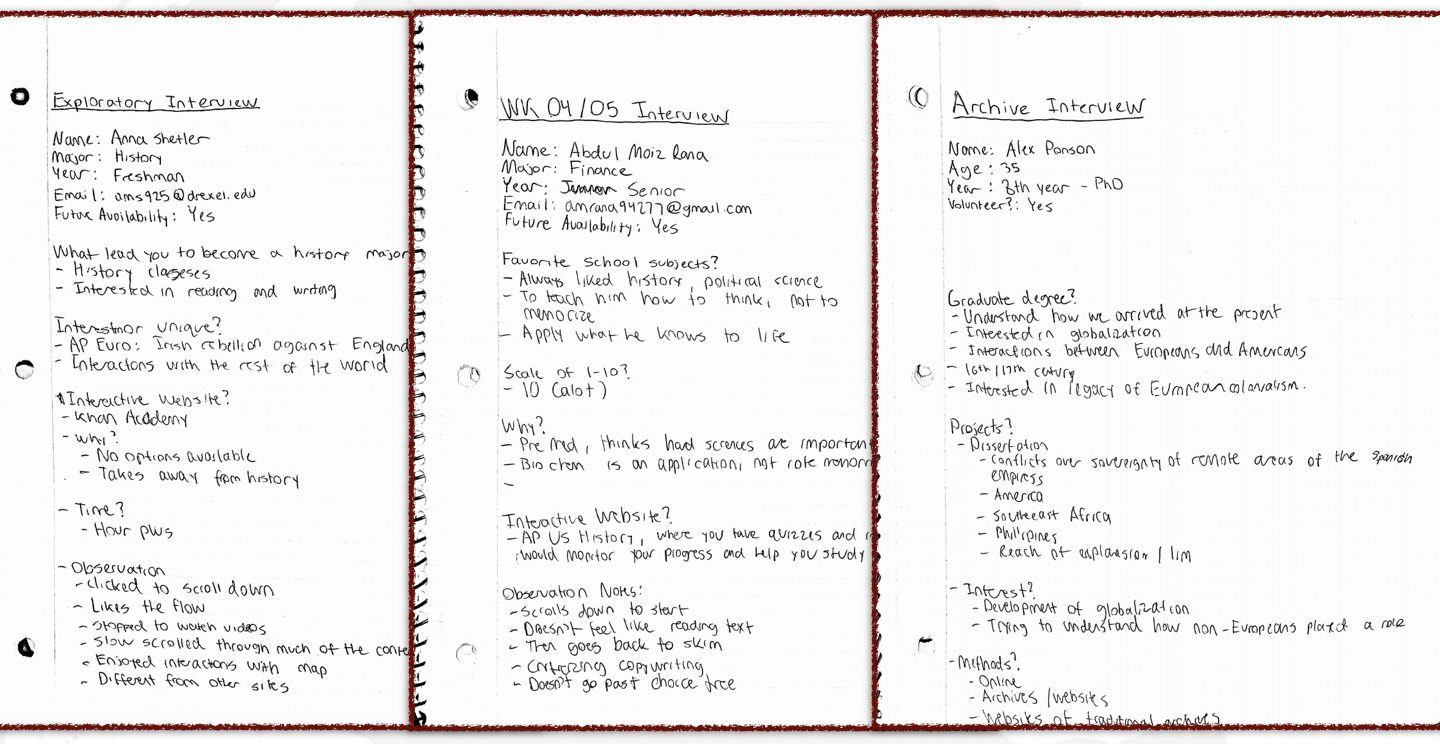 Exploratory Interview
Name: Anna Shetler
Major: History
Year: Freshman
Email: ams925@drexel.edu
Future Availability: Yes
What lead you to become a history major
- History classeses
- Interested in reading and writing
unique?
- AP Euro: Irish rebellion against England
- Interactions with the rest of the world
Interactive Website?
- Khan Academy
- Why?
- No options available
- Takes away from history
- Time?
- Hour plus
- Observation
- Clicked to scroll down
- Likes the flow
- Stopped to watch videos
- Slow scrolled through much of the conte
- Enjoyed interactions with map
- Different from other sites
WK 04/05 Interview
Name: Abdul Moiz Rana
Major: Finance
Year: Senior
Email: amrana94277@gmail.com
Future Availability: Yes
Favorite school subjects?
- Always liked history, political science
- To teach him how to think, not to
memorize
- Apply what he knows to life
Scale of 1-10?
- 10 (alot)
Why?
- Pre Med, thinks hard sciences are important
- Bio chem is an application, not rote memori
-
Interactive Website?
- AP US History, where you take quizzes and
would monitor your progress and help you study
Observation Notes:
- Scrolls down to start
- Doesn't feel like reading text
- Then goes back to skim
- Critizing copywriting
- Doesn't go past choice tree
Archive Interview
Name: Alex Ponson
Age: 35
Year: 8th year - PhD
Volunteer?: Yes
Graduate degree?
- Understand how we arrived at the present
- Interested in globalization
- Interactions between Europeans and Americans
- 16th/17th cetury
- Interested in legacy of European colonialism.
Projects?
- Dissertation
- Conflicts over sovereignty of remote areas of the Spanish
empires
- America
- Southeast Africa
- Philipines
- Reach of / lim
- Interest?
- Development of globalization
- Trying to understand how non-Europeans played a role
- Methods?
- Online
- Archives /websites
- Websites of traditional archives